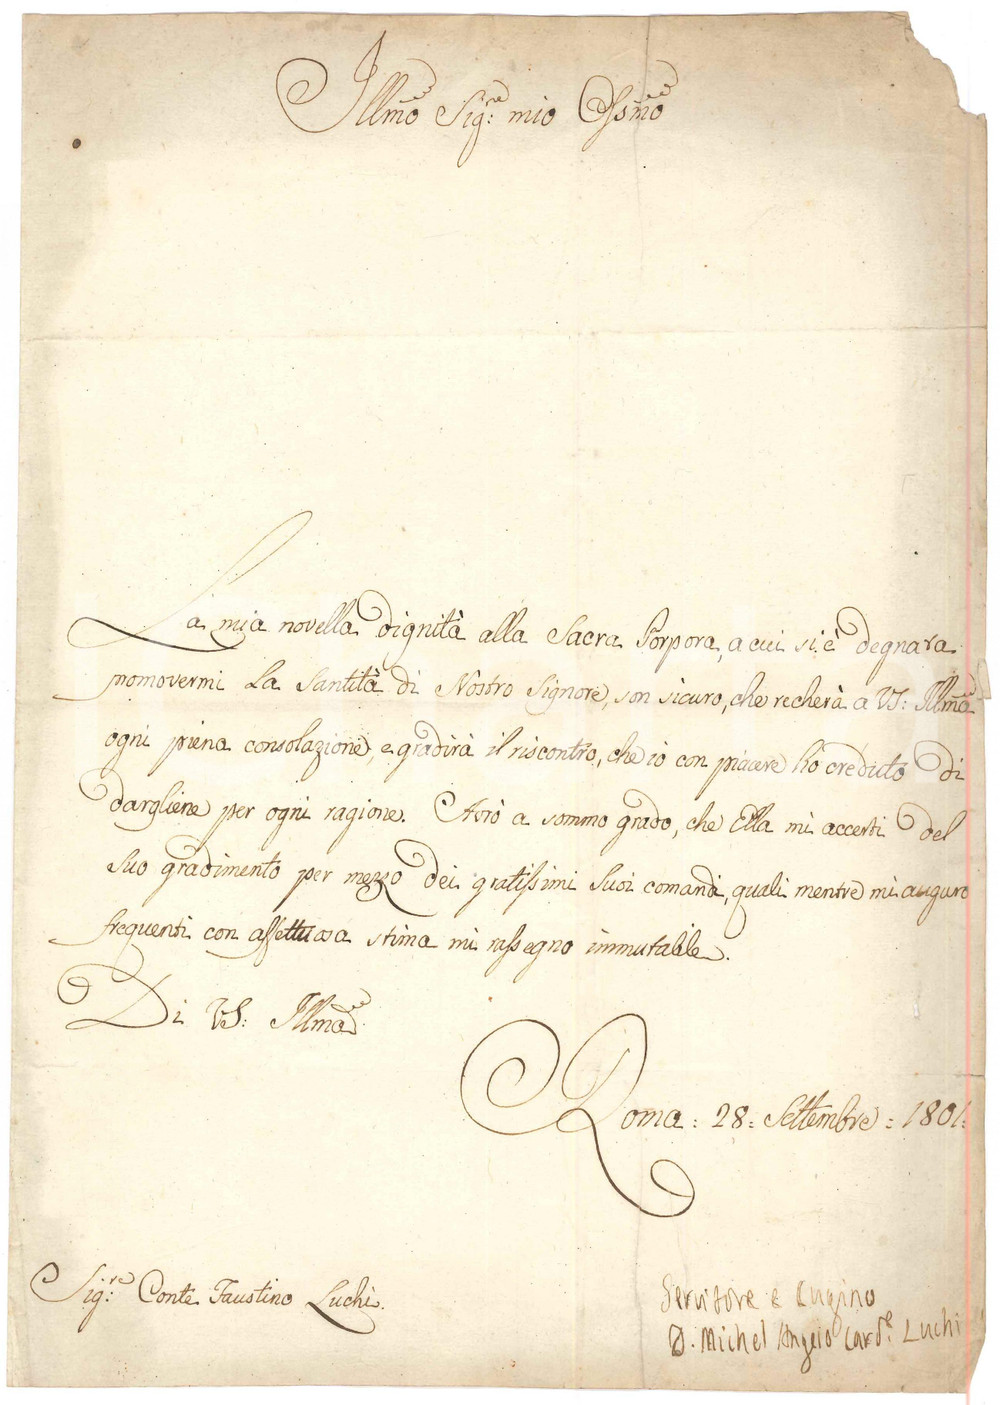 Illmo Sig:re mio Ossmo
La mia novella dignità alla Sacra Porpora, a cui si è degnata
promovermi La Santità di Nostro Signore, son sicuro, che recherà a VS: Illma
ogni piena consolazione, e gradirà il riscontro, che io con piacere ho creduto di
dargliene per ogni ragione. Avrò a sommo grado, che Ella mi accerti del
suo gradimento per mezzo dei gratissimi suoi comandi, quali mentre mi auguro
frequenti con affettuosa stima mi rassegno immutabile.
Di VS: Illma
Roma: 28: Settembre: 1801:
Sig:re Conte Faustino Luchi.
Servitore e Cugino
D. Michel Angelo Card:e Luchi